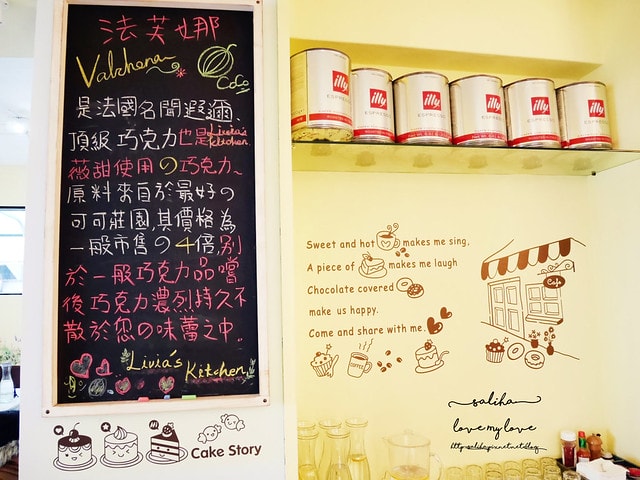 法芙娜
Valrhona
CoCo
是法國名聞遐邇、
頂級巧克力也是Livia's Kitchen
薇甜使用の巧克力~
原料來自於最好の
可可莊園,其價格為
一般市售の4倍別
於一般巧克力品嚐
後巧克力濃烈持久不
散於您の味蕾之中。
Livia's Kitchen
Cake Story
illy
ESPRESSO
illy
ESPRESSO
illy
ESPRESSO
illy
ESPRESSO
illy
ESPRESSO
illy
ESPRESSO
Sweet and hot makes me sing.
A piece of makes me laugh
Chocolate covered
make us happy.
Come and share with me.
COFFEE
Cafe
saliha
love my love